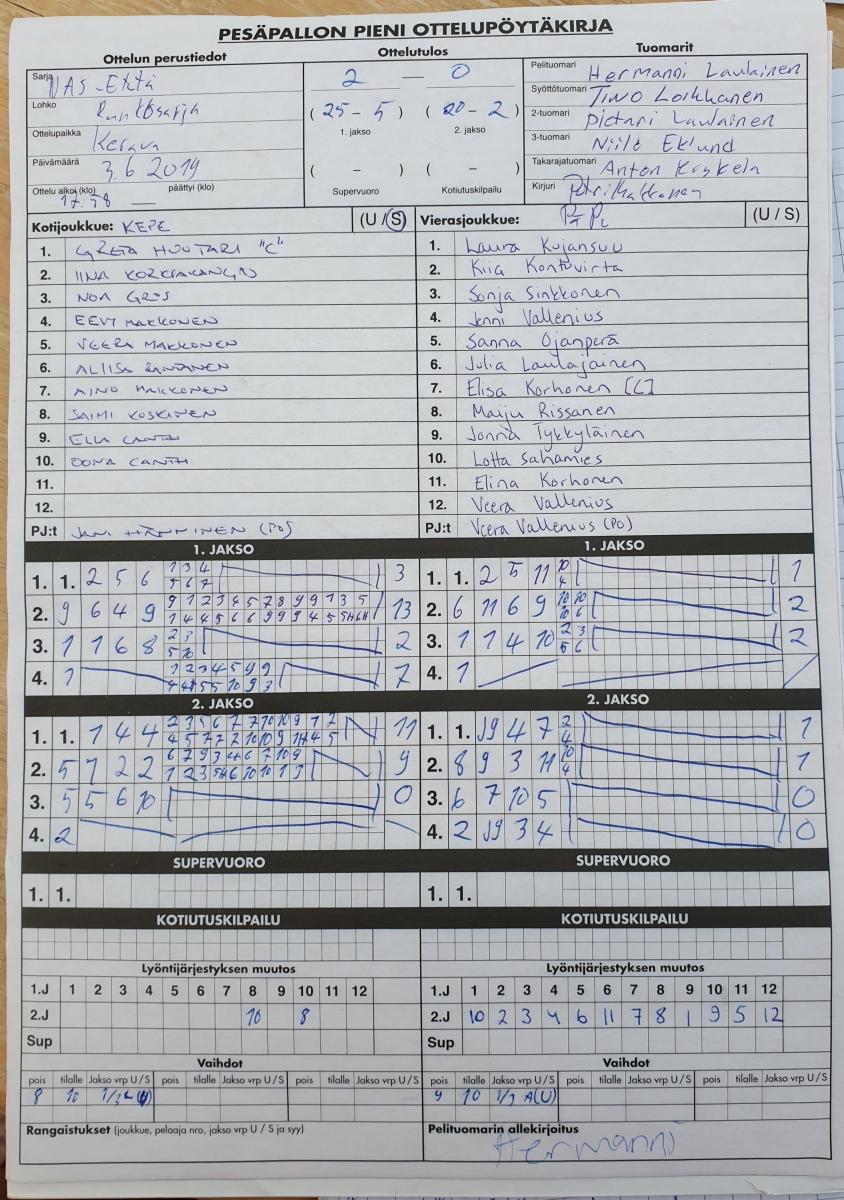 PESÄPALLON PIENI OTTELUPÖYTÄKIRJA
Ottelun perustiedot Ottelutulos Tuomarit
Sarja NAS-Etelä
Lohko Runkosarja
Ottelupaikka Kerava
Päivämäärä 3.6 2019
Ottelu alkoi (klo) 17.58 — päättyi (klo)
2 — 0
( 25 - 5 ) ( 20 - 2 )
1. jakso 2. jakso
( - ) ( - )
Supervuoro Kotiutuskilpailu
Pelituomari Hermanni Laulainen
Syöttötuomari Timo Loikkanen
2-tuomari Pietari Laulainen
3-tuomari Niilo Eklund
Takarajatuomari Anton Koskela
Kirjuri
Kotijoukkue: KEPE (U / S)
1. GRETA HUUTARI "C"
2. IINA
3. NOA GROS
4. EEVI MAKKONEN
5. VEERA MAKKONEN
6. ALIISA RANTANEN
7. AINO MAKKONEN
8. SAIMI KOSKINEN
9. ELLA CANTH
10. OONA CANTH
11.
12.
PJ:t JANI HÄNNINEN (PO)
Vierasjoukkue: (U / S)
1. Laura Kujansuu
2. Kiia Kontuvirta
3. Sonja Sinkkonen
4. Jenni Vallenius
5. Sanna Ojanperä
6. Julia Laulajainen
7. Elisa Korhonen [C]
8. Maiju Rissanen
9. Jonna Tykkyläinen
10. Lotta Sahamies
11. Elina Korhonen
12. Veera Vallenius
PJ:t Veera Vallenius (PO)
1. JAKSO
1. 1. 2 5 6 1 3 4 3
5 6 7
2. 9 6 4 9 9 1 2 3 4 5 7 8 9 9 1 3 5 13
3. 1 1 6 8 2 3 2
5 10
4. 1 1 2 3 4 5 9 9 7
1. JAKSO
1. 1. 2 5 11 10 1
4
2. 6 11 6 9 10 10 2
10 6
3. 1 1 4 10 2 3 2
5 6
4. 1
2. JAKSO
1. 1. 1 4 4 2 3 5 6 7 7 10 10 9 1 2 11
2. 5 7 2 2 6 7 9 3 4 6 7 10 9 9
3. 5 5 6 10 0
4. 2
2. JAKSO
1. 1. 4 7 2 1
4
2. 8 9 3 11 10 1
4
3. 6 7 10 5 0
4. 2 3 4 0
SUPERVUORO
1. 1.
SUPERVUORO
1. 1.
KOTIUTUSKILPAILU
KOTIUTUSKILPAILU
Lyöntijärjestyksen muutos
1.J 1 2 3 4 5 6 7 8 9 10 11 12
2.J 10 8
Sup
Lyöntijärjestyksen muutos
1.J 1 2 3 4 5 6 7 8 9 10 11 12
2.J 10 2 3 4 6 11 7 8 1 9 5 12
Sup
Vaihdot
pois tilalle Jakso vrp U / S pois tilalle Jakso vrp U / S pois tilalle Jakso vrp U / S
8 10
Vaihdot
pois tilalle Jakso vrp U / S pois tilalle Jakso vrp U / S pois tilalle Jakso vrp U / S
9 10 1/3 A(U)
Rangaistukset (joukkue, pelaaja nro, jakso vrp U / S ja syy)
Pelituomarin allekirjoitus
Hermanni